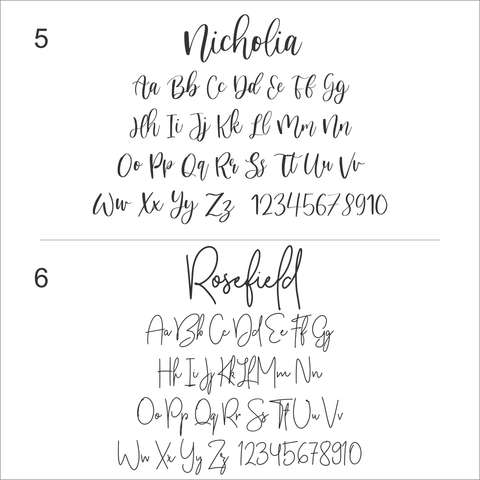 5
Nicholia
Aa Bb Cc Dd Ee Ff Gg
Hh Ii Jj Kk Ll Mm Nn
Oo Pp Qq Rr Ss Tt Uu Vv
Ww Xx Yy Zz 12345678910
6
Rosefield
Aa Bb Cc Dd Ee Ff Gg
Hh Ii Jj Kk Ll Mm Nn
Oo Pp Qq Rr Ss Tt Uu Vv
Ww Xx Yy Zz 12345678910